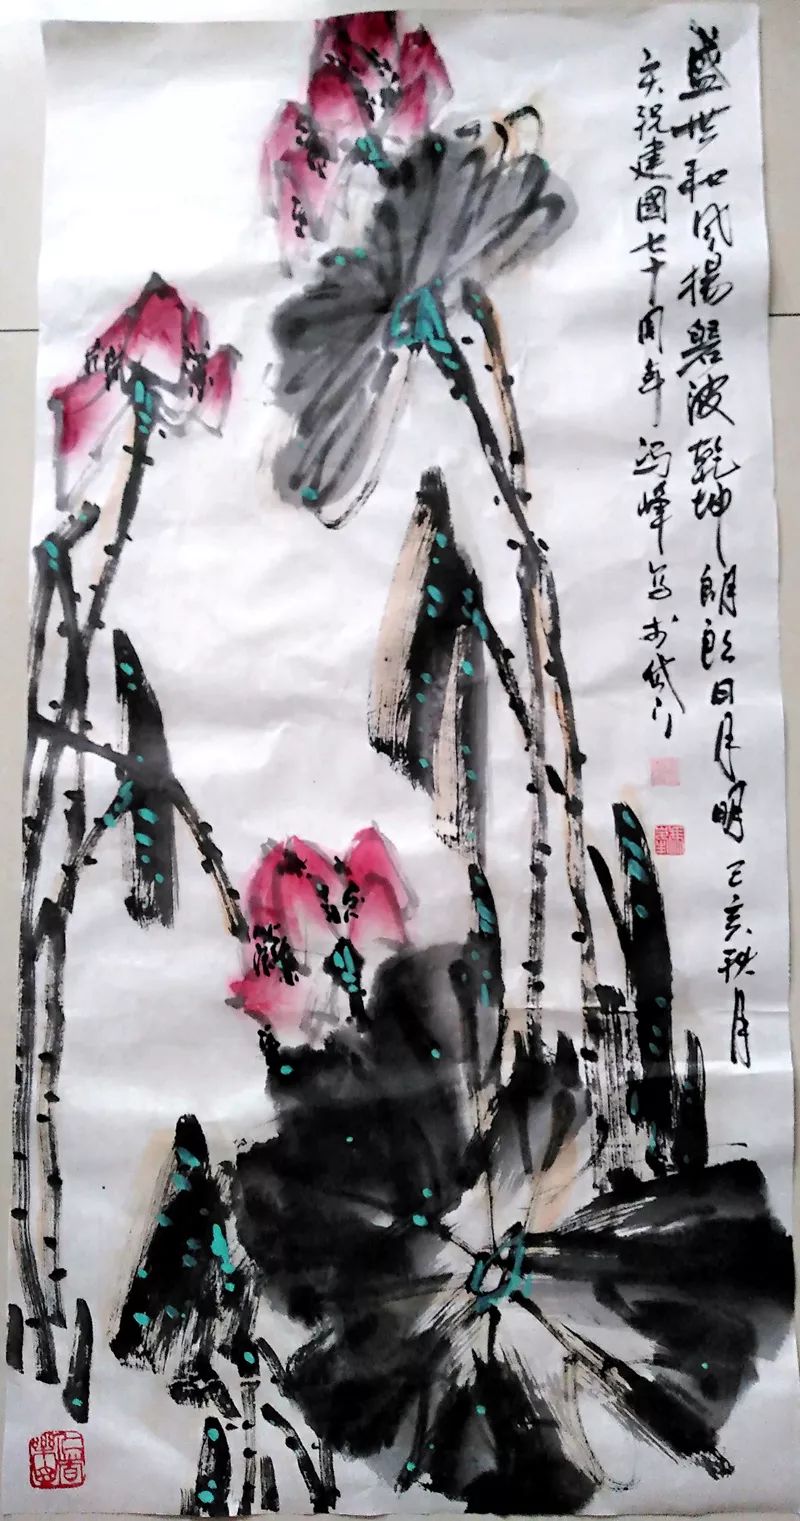 盛世和风扬碧波乾坤朗朗日月明己亥秋月
庆祝建國七十周年冯峰写於岱下